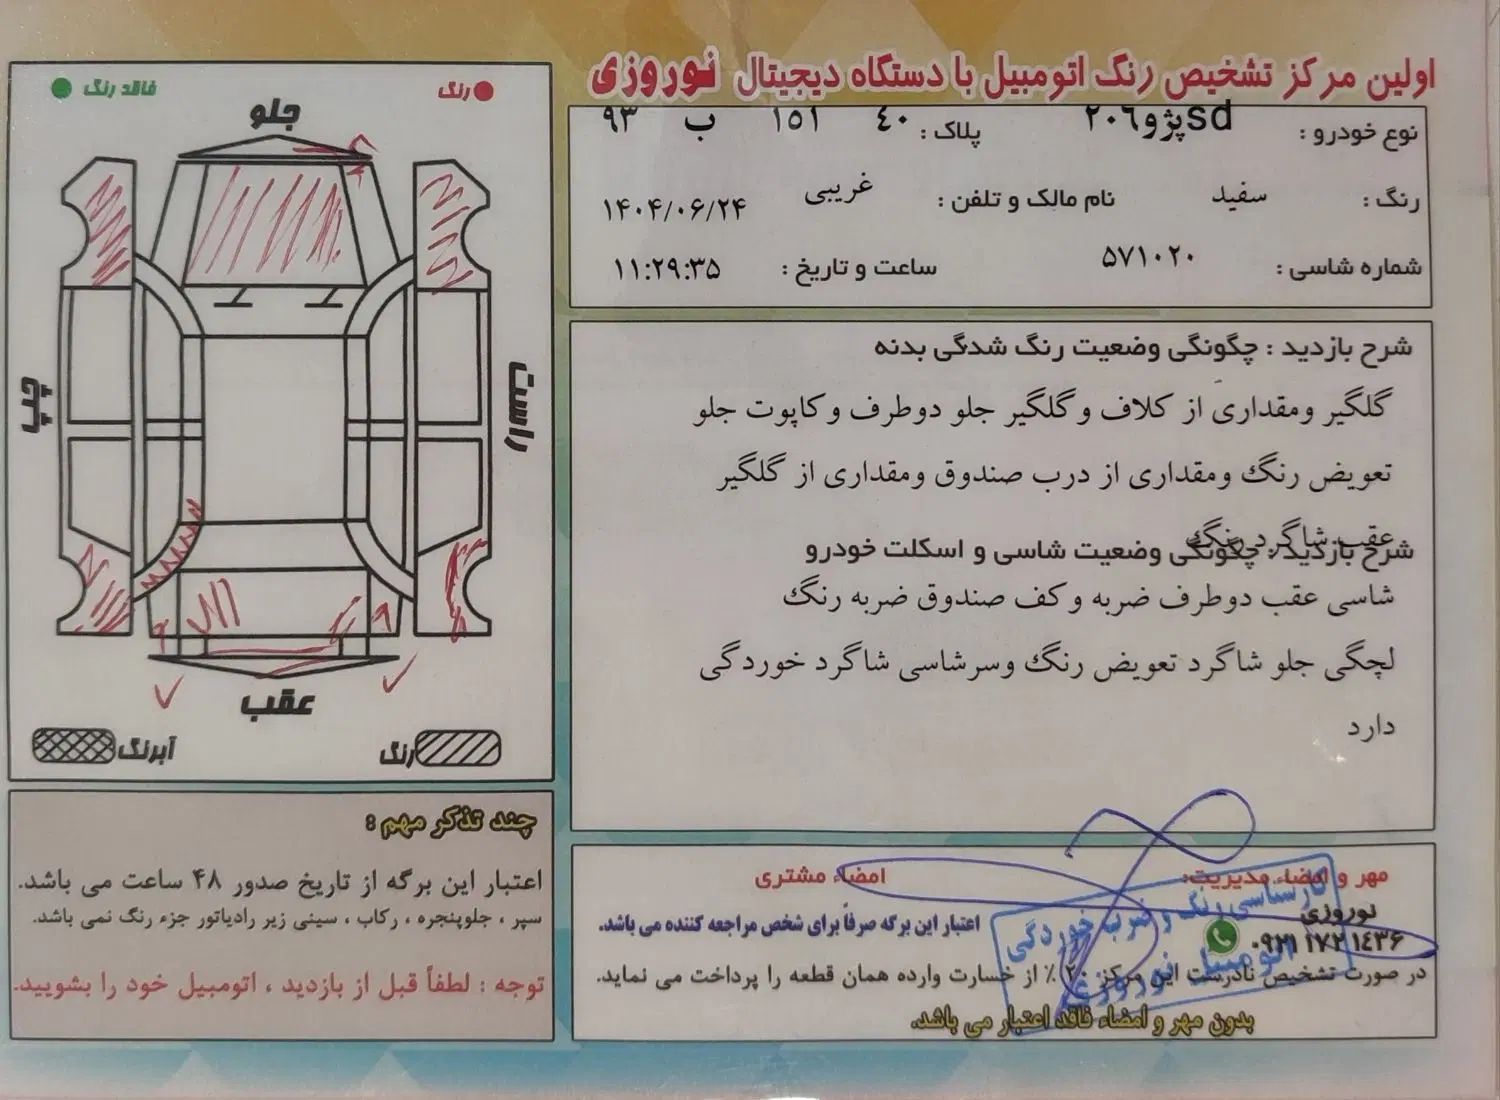 اولین مرکز تشخیص رنگ اتومبیل با دستگاه دیجیتال نوروزی
نوع خودرو : پژو۲۰٦sd پلاک : ٤٠ ۱٥۱ ب ۹۳
رنگ : سفید نام مالک و تلفن : غریبی ۱۴۰۴/۰۶/۲۴
شماره شاسی : ۵۷۱۰۲۰ ساعت و تاریخ : ۱۱:۲۹:۳۵
شرح بازدید : چگونگی وضعیت رنگ شدگی بدنه
گلگیر ومقداری از کلاف وگلگیر جلو دوطرف وکاپوت جلو
تعویض رنگ ومقداری از درب صندوق ومقداری از گلگیر
عقب شاگرد رنگ
شرح بازدید : چگونگی وضعیت شاسی و اسکلت خودرو
شاسی عقب دوطرف ضربه وکف صندوق ضربه رنگ
لچگی جلو شاگرد تعویض رنگ وسرشاسی شاگرد خوردگی
دارد
رنگ
فاقد رنگ
جلو
راست
چپ
عقب
رنگ
آبرنگ
چند تذکر مهم :
اعتبار این برگه از تاریخ صدور ۴۸ ساعت می باشد.
سپر ، جلوپنجره ، رکاب ، سینی زیر رادیاتور جزء رنگ نمی باشد.
توجه : لطفاً قبل از بازدید ، اتومبیل خود را بشویید.
مهر و امضاء مدیریت: امضاء مشتری
نوروزی
۰۹۲۱ ۱۷۲ ۱۴۳۶
اعتبار این برگه صرفاً برای شخص مراجعه کننده می باشد.
در صورت تشخیص نادرست این مرکز ۲۰ ٪ از خسارت وارده همان قطعه را پرداخت می نماید.
بدون مهر و امضاء فاقد اعتبار می باشد.
کارشناسی رنگ و ضرب خوردگی
اتومبیل نوروزی